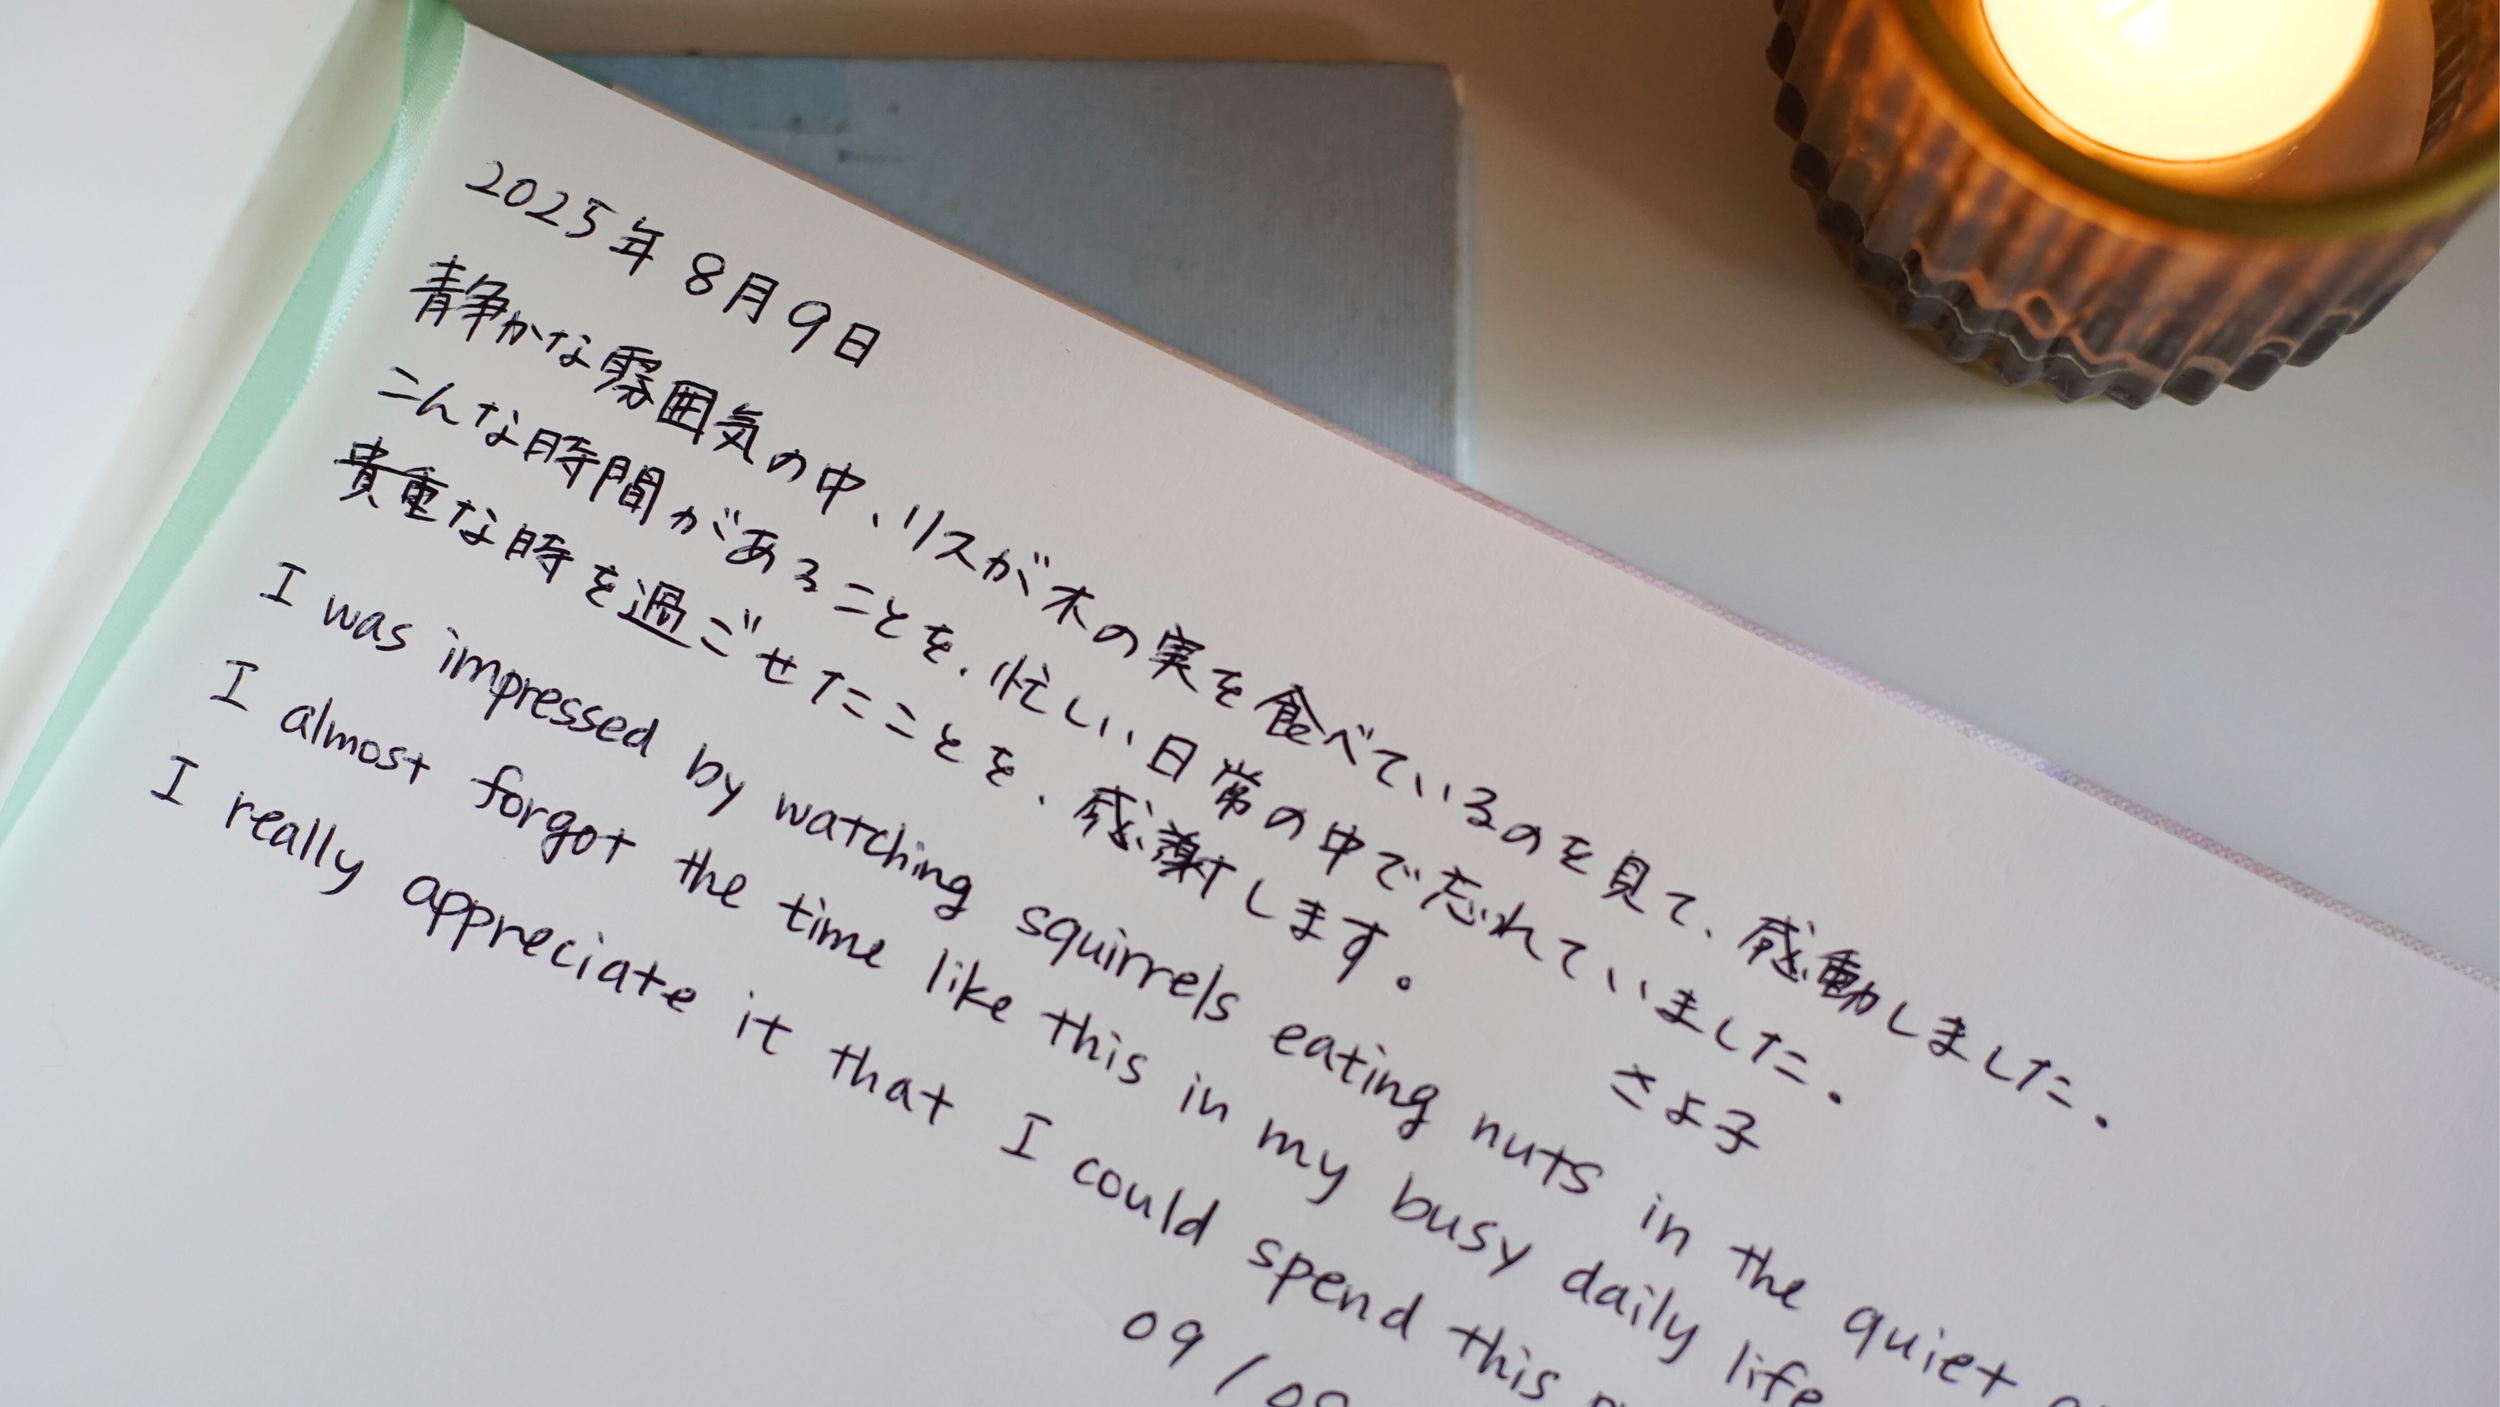 2025年8月9日
静かな雰囲気の中、リスが木の実を食べているのを見て、感動しました。
こんな時間があることを、忙しい日常の中で忘れていました。
貴重な時を過ごせたことを、感謝します。
さよ子
I was impressed by watching squirrels eating nuts in the quiet
I almost forgot the time like this in my busy daily life
I really appreciate it that I could spend this
09/08